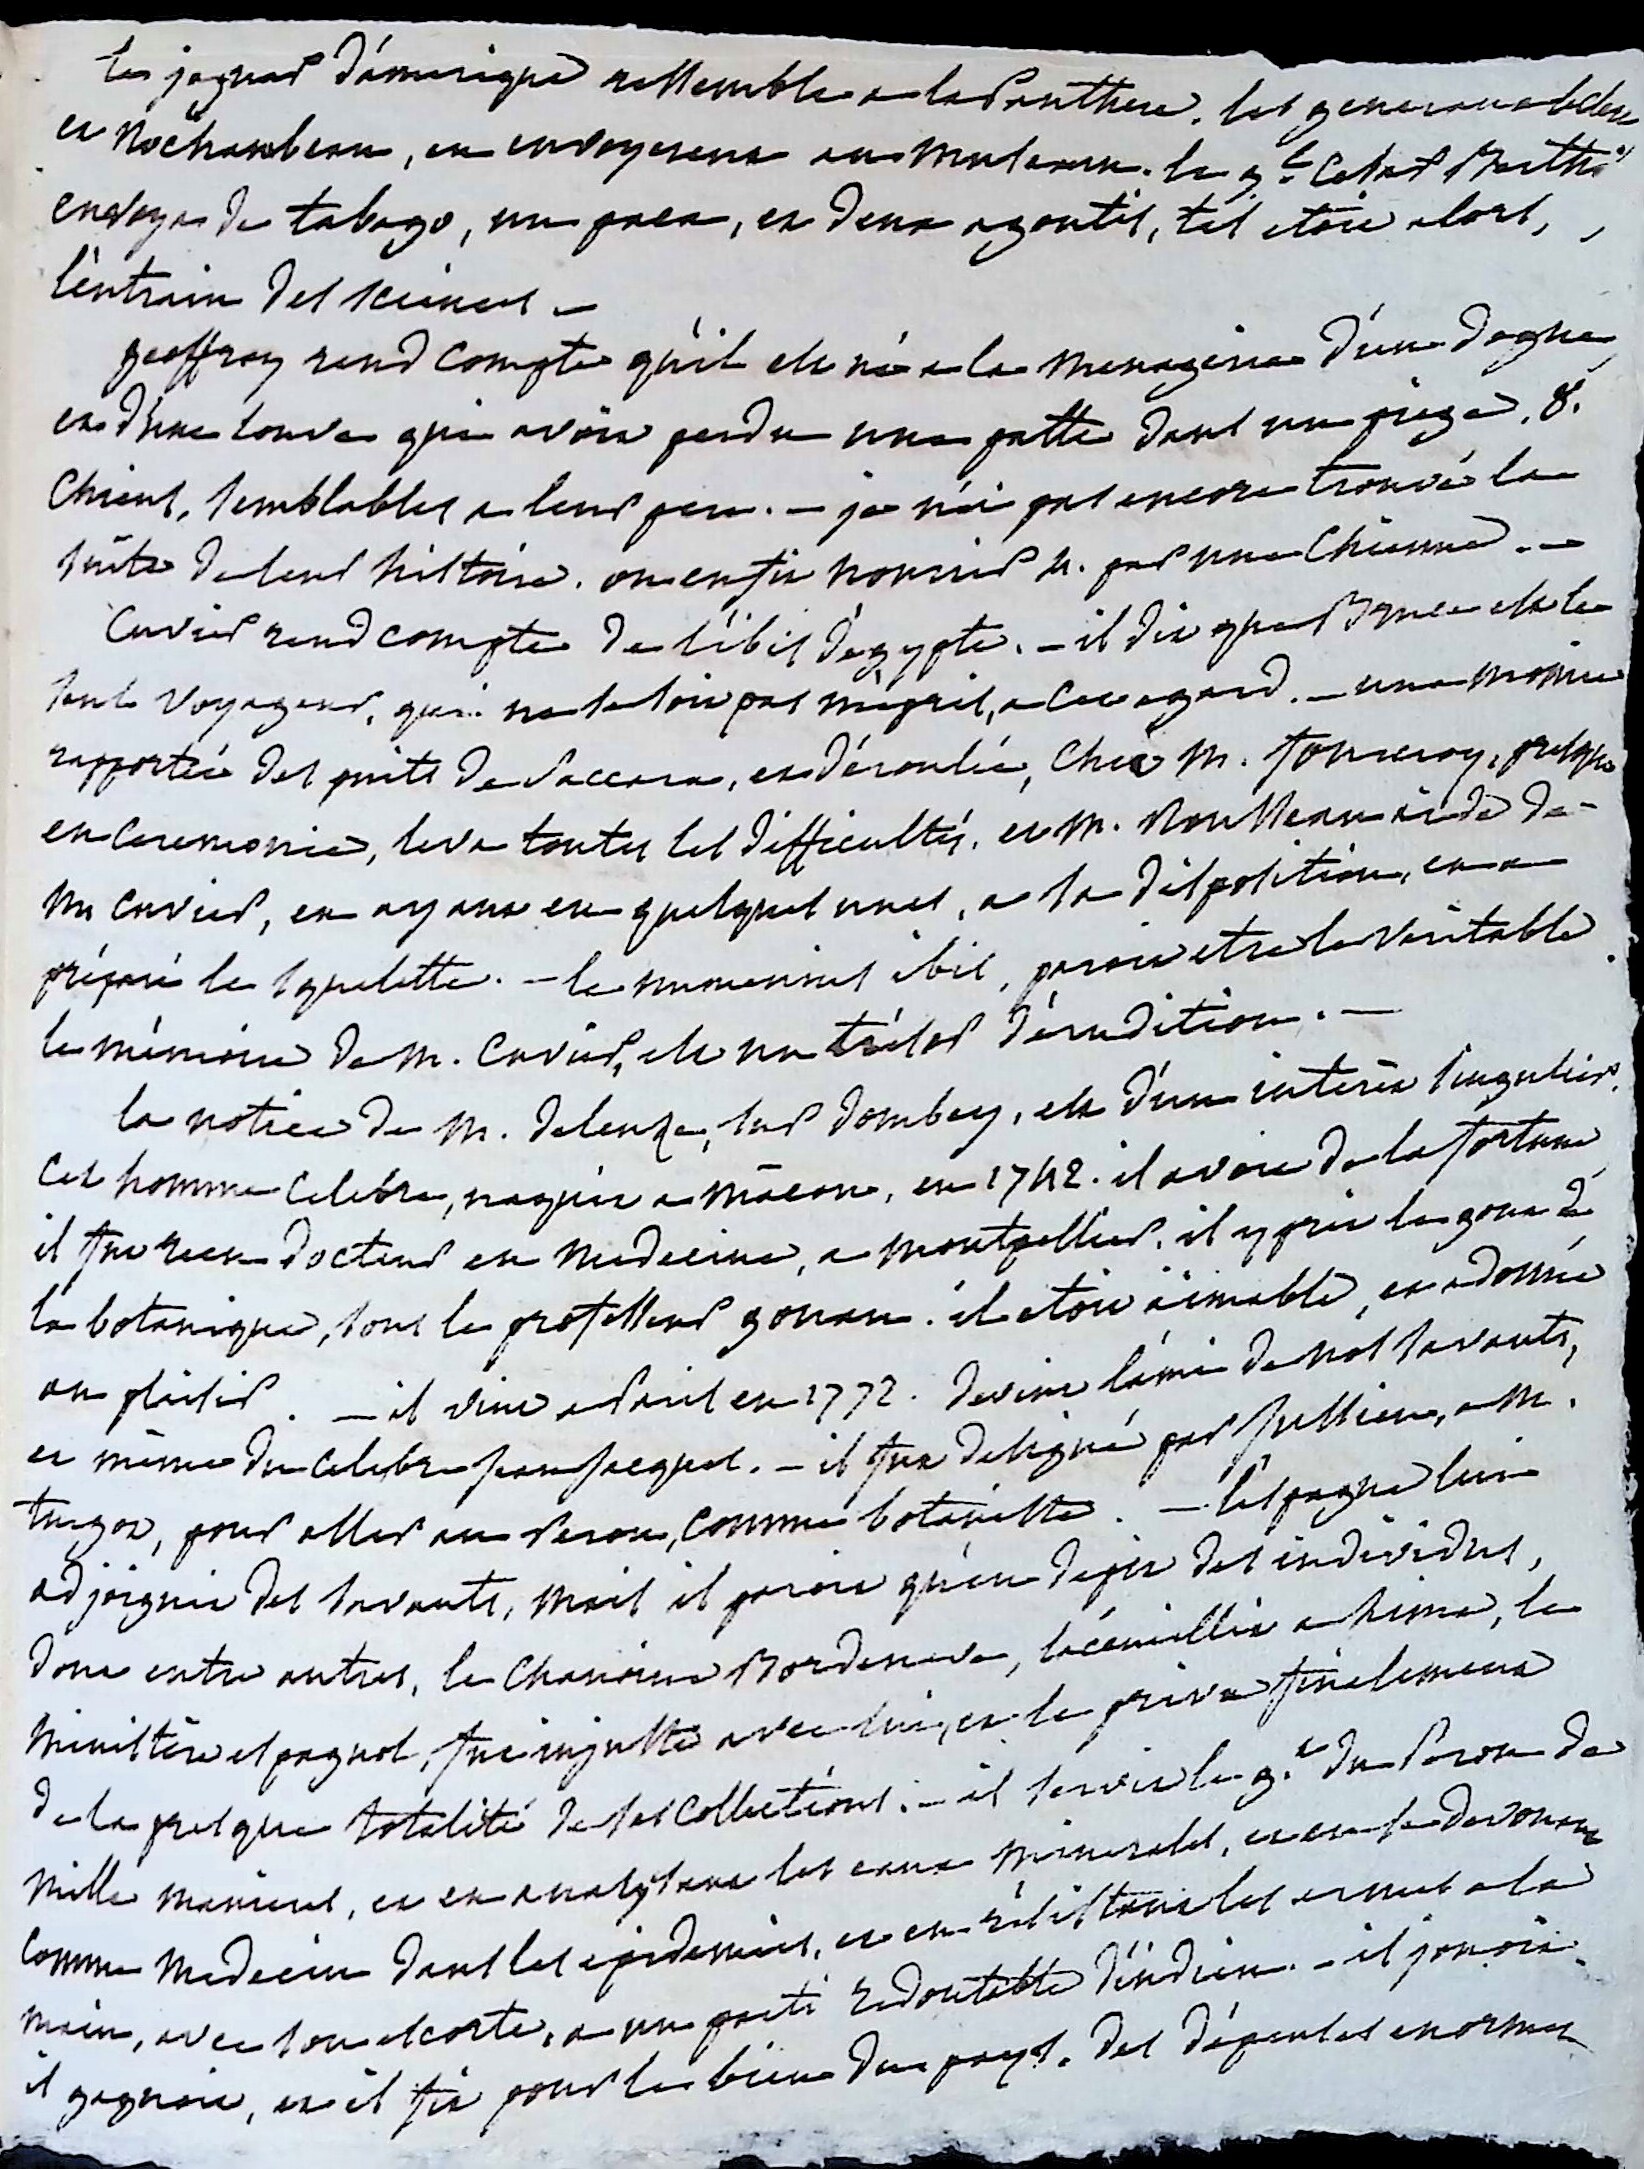 le jaguar d'amerique ressemble a la Panthere. les generaux leclerc
et Rochambeau, en envoyerent au Museum. le g.l Cesar Berthier
envoya de tabago, un paca, et deux agoutis, tel etoit alors,
l'entrain des sciences. —
geoffroy rend compte qu'il est né a la menagerie d'un dogue,
et d'une louve qui avoit perdu une patte dans un piege, 8.
chiens, semblables a leur pere. — je n'ai pas encore trouvé la
suite de leur histoire. on en fit nourrir 4. par une chienne. —
Cuvier rend compte de l'ibis d'egypte. — il dit que Bruce est le
seul voyageur, qui ne se soit pas mépris, a cet egard. — une momie
rapportée des puits de Saccara, et déroulée, chez M. fourcroy, presque
en ceremonie, leva toutes les difficultés. et M. Rousseau aide de
Mr Cuvier, en ayant eu quelques unes, a sa disposition, en a
préparé le squelette. — le numenius ibis, paroit etre le véritable.
le mémoire de M. Cuvier, est un trésor d'érudition. —
la notice de M. deleuze, sur dombey, est d'un interêt singulier.
cet homme celebre, naquit a mâcon, en 1742. il avoit de la fortune,
il fut recu docteur en medecine, a montpellier. il y prit le gout de
la botanique, sous le professeur gouan. il etoit aimable, et adonné
au plaisir. — il vint a Paris en 1772. devint l'ami de nos savants,
et même du celebre jean jacques. — il fut designé par jussieu, a M.
turgot, pour aller au Perou, comme botaniste. — l'espagne lui
adjoignit des savants, mais il paroit qu'en depit des individus,
dont entre autres, le chanoine Bordenave, l'accueillit a Lima, le
ministère espagnol, fut injuste avec lui, et le priva finalement
de la presque totalité de ses collections. — il servit le g.t du Perou de
mille manieres, et en analysant les eaux minerales, et en se devouant
comme medecin dans les epidemies, et en résistant les armes a la
main, avec son escorte, a un parti redoutable d'indiens. — il jouoit
il gagnoit, et il fit pour le bien du pays, des dépenses enormes